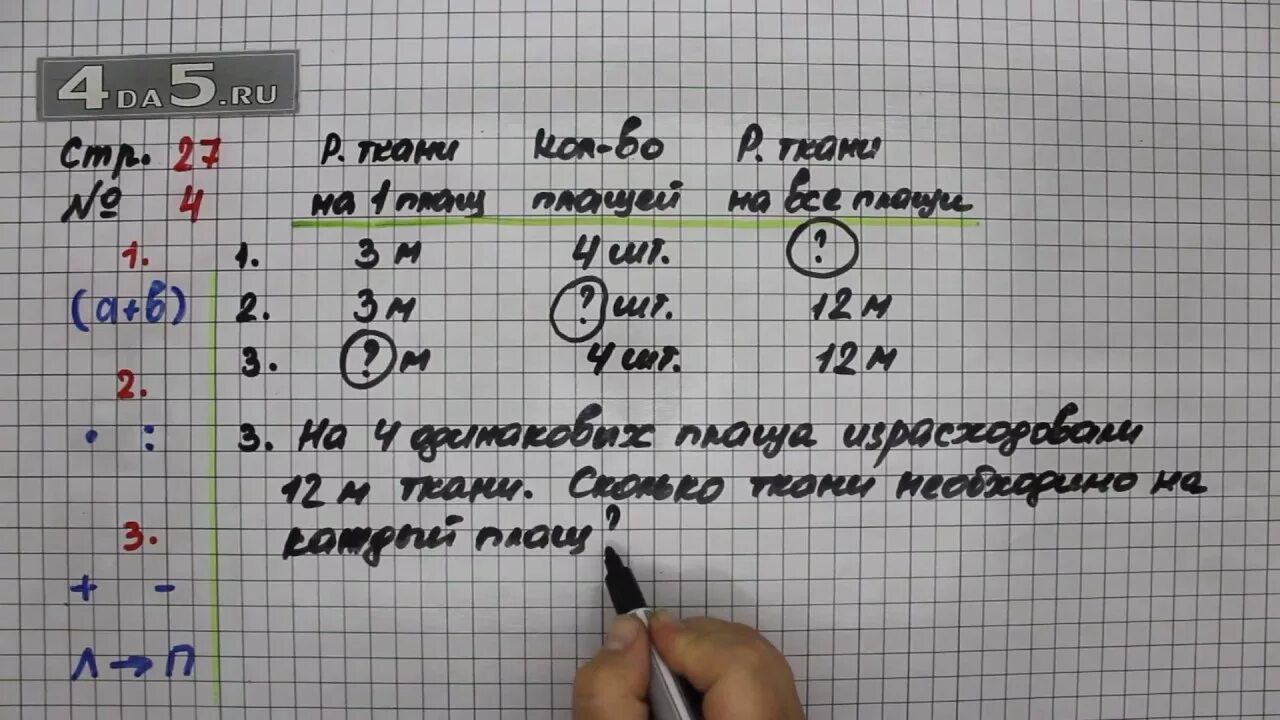 4DA5.RU
Стр. 27
№ 4
Р. ткани Кол-во Р. ткани
на 1 плащ плащей на все плащи
1. 3 м 4 шт. ?
2. 3 м ? шт. 12 м
3. ? м 4 шт. 12 м
3. На 4 одинаковых плаща израсходовали
12 м ткани. Сколько ткани необходимо на
каждый плащ?
1.
(а+в)
2.
• :
3.
+ -
Л → П